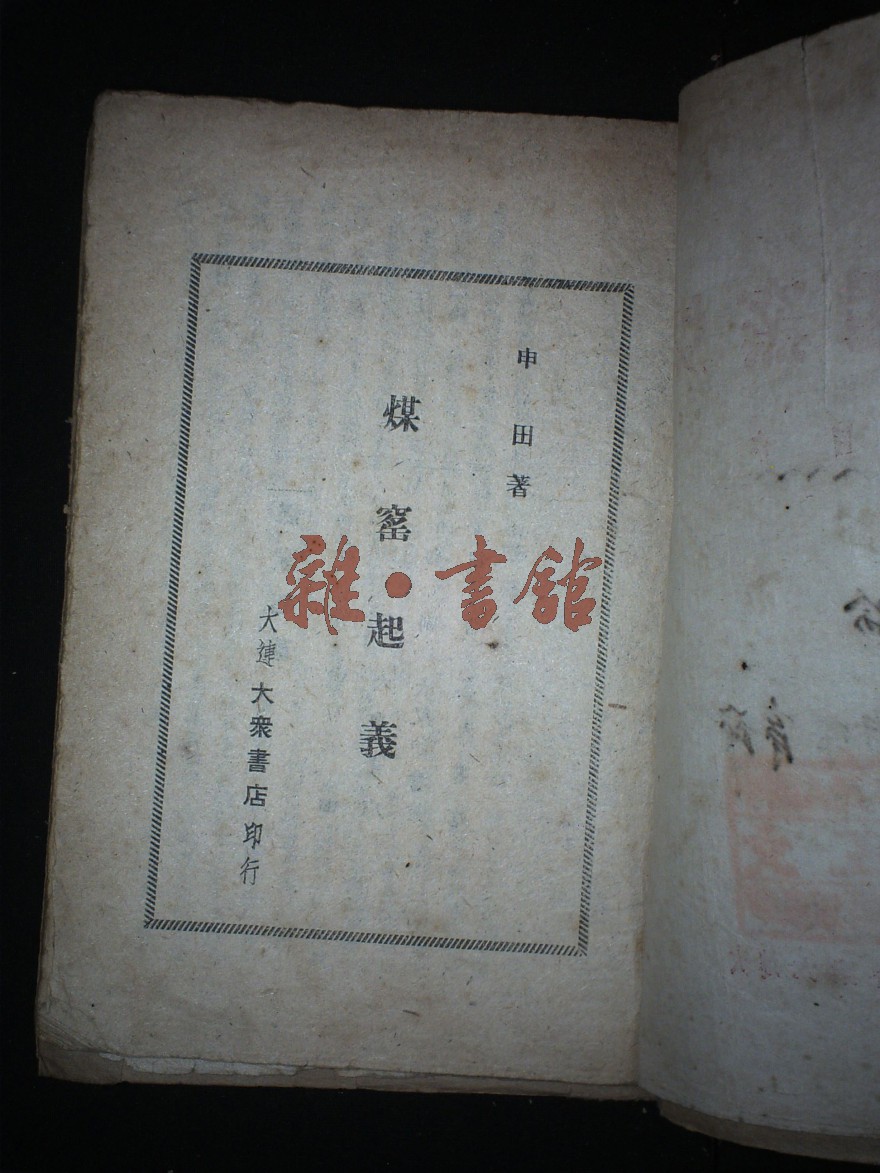 申田著
煤窰起義
大連大衆書店印行
雜·書館